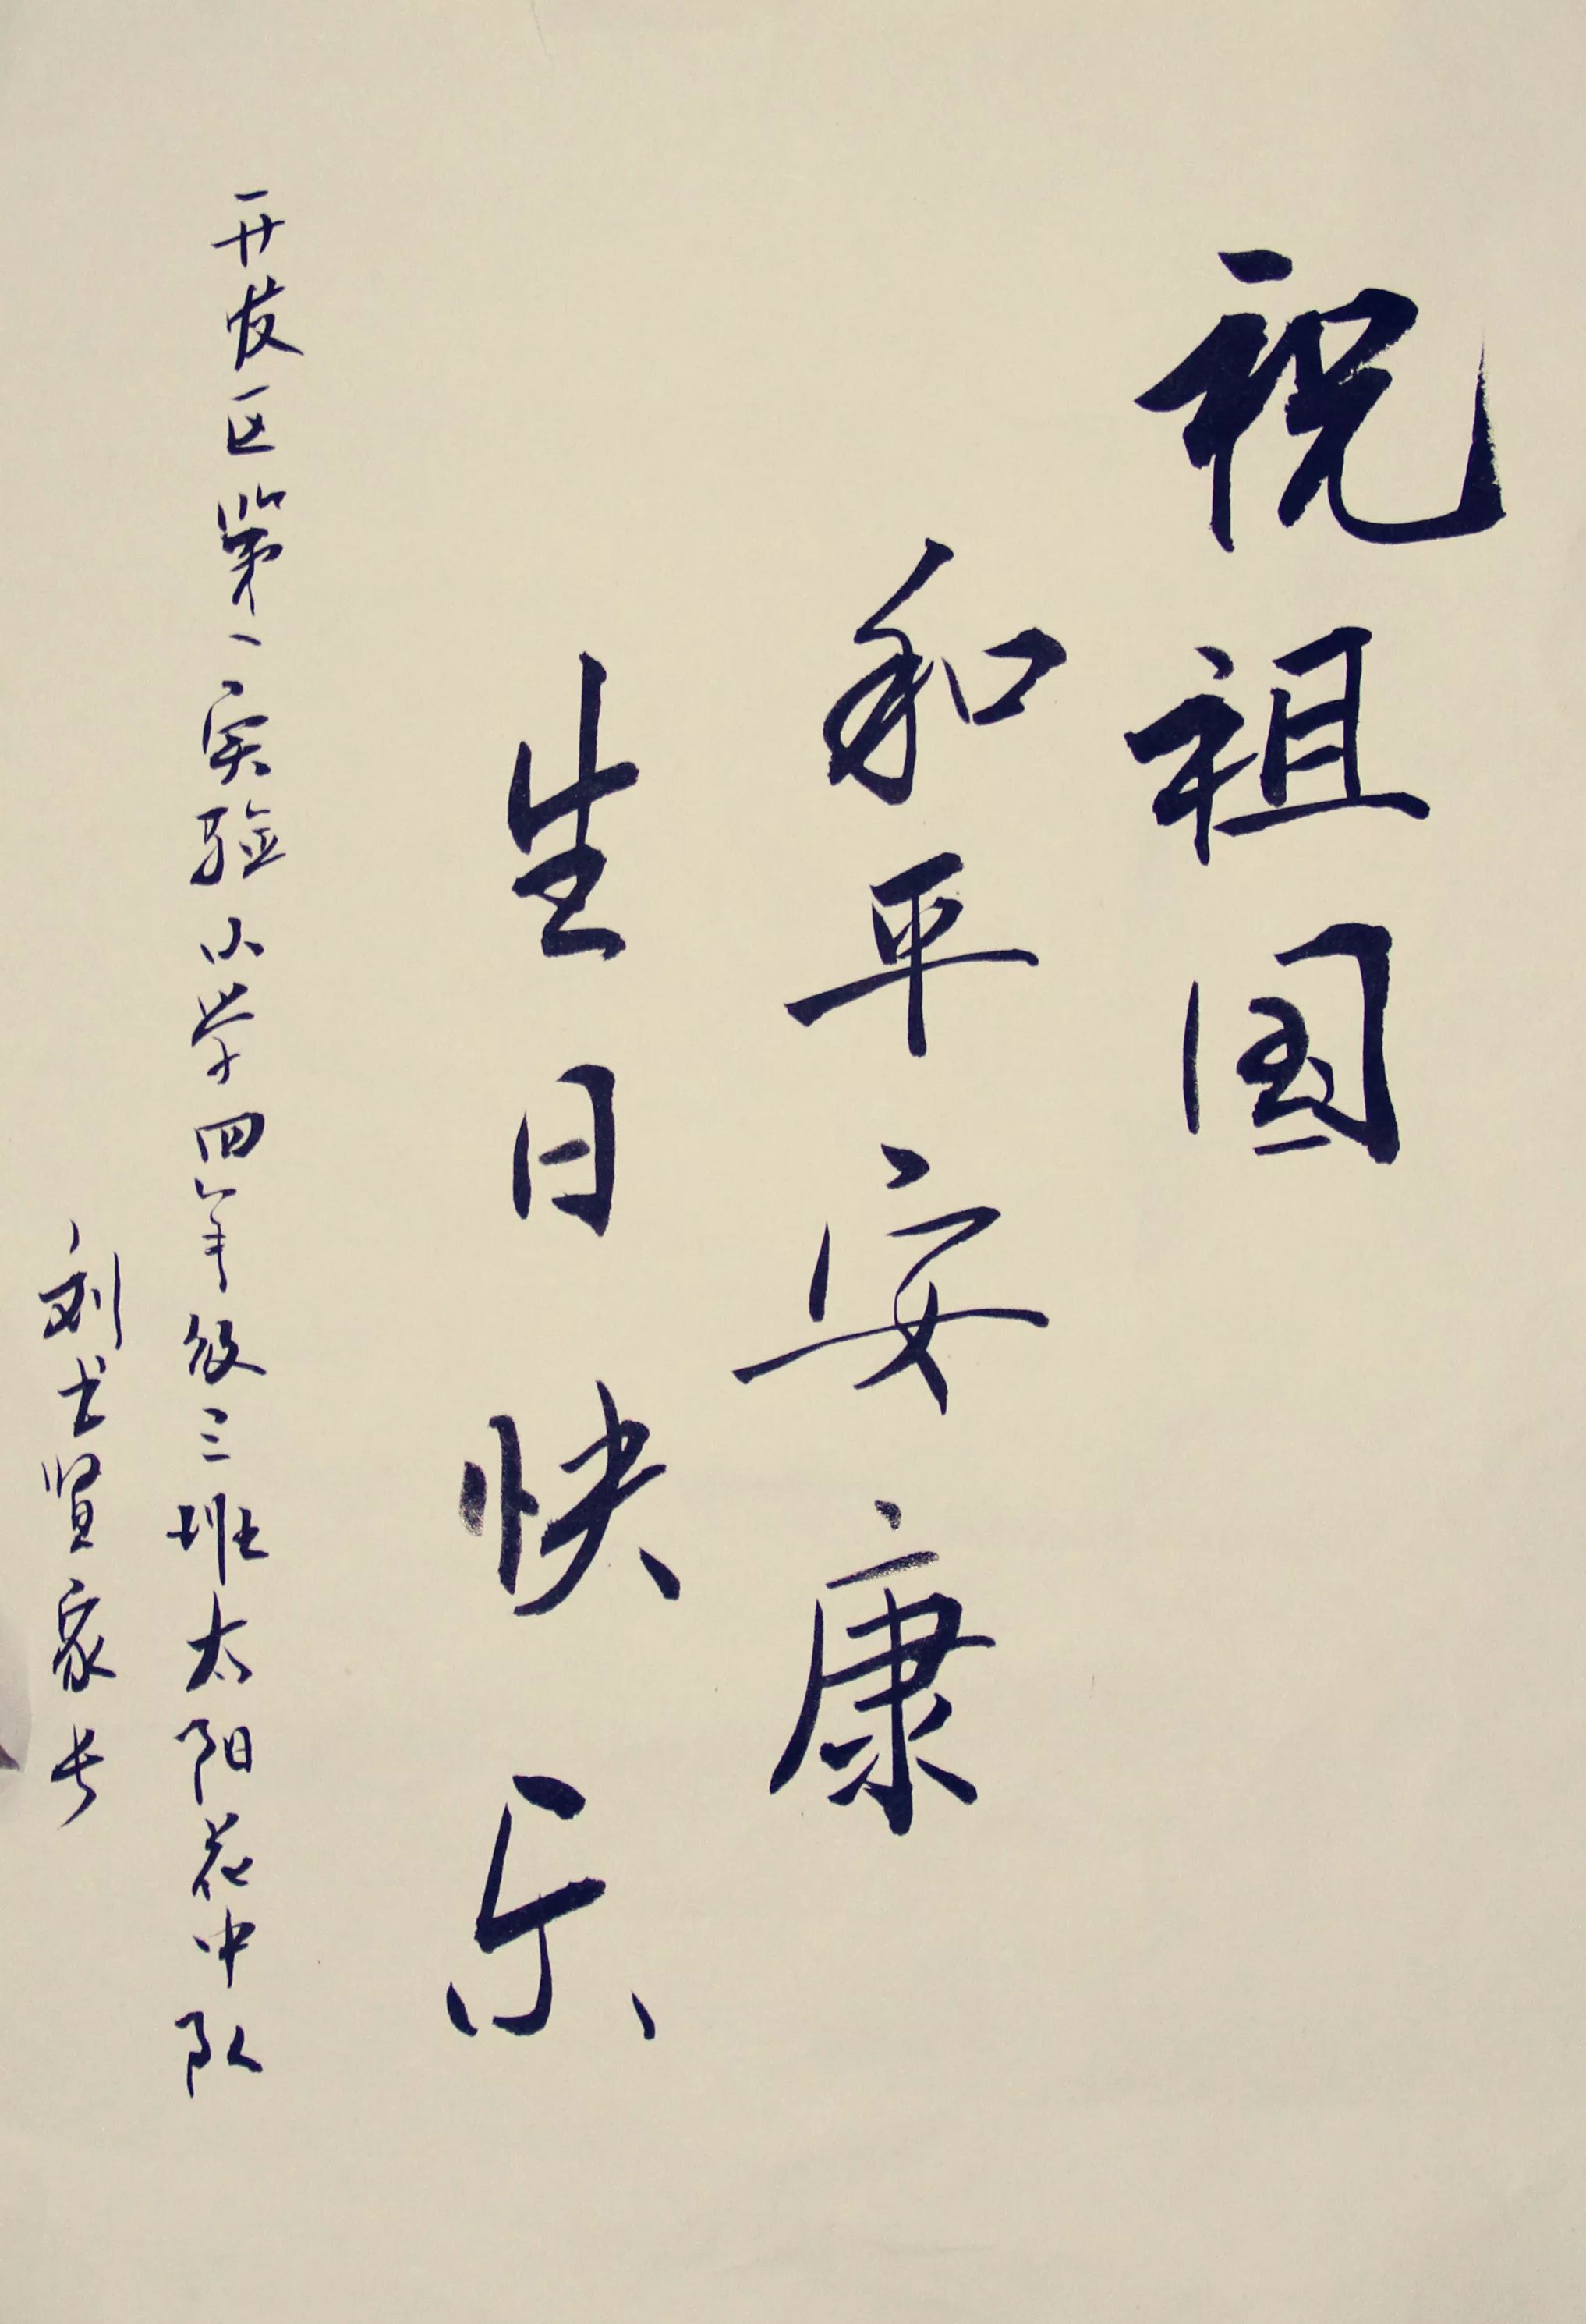 祝祖国
和平安康
生日快乐
开发区第一实验小学四年级三班太阳花中队
刘士贤家长